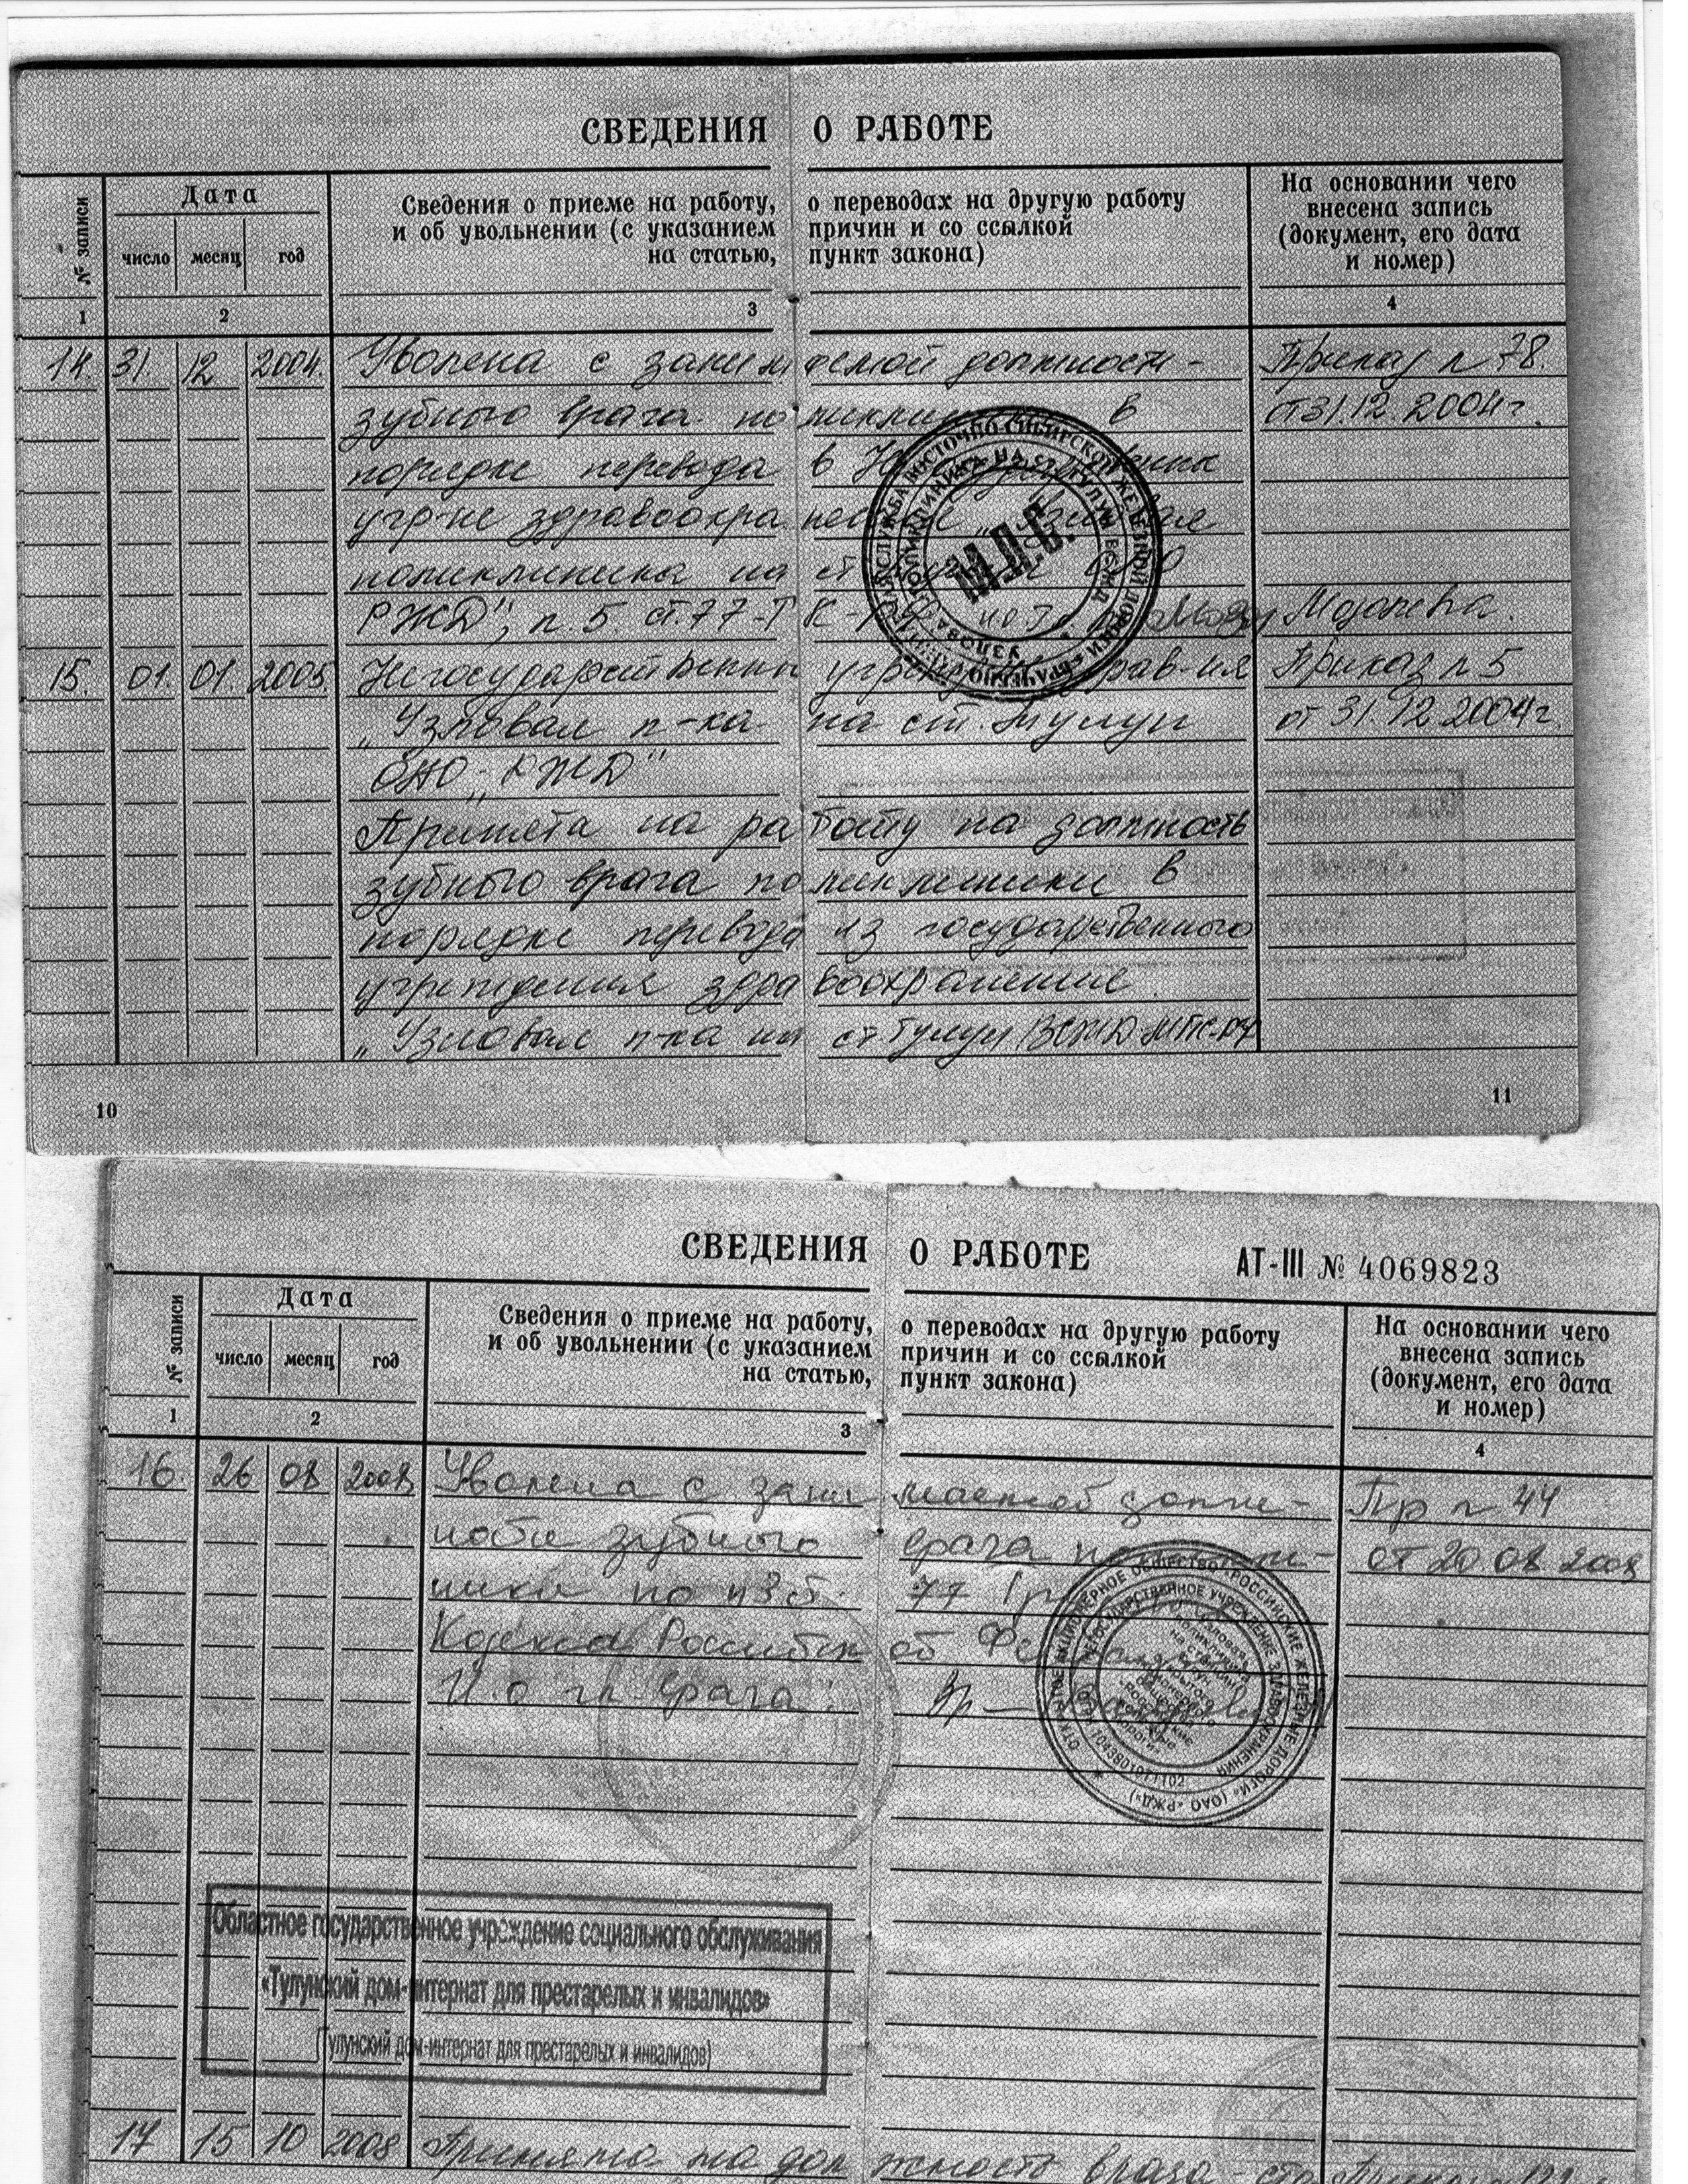 СВЕДЕНИЯ О РАБОТЕ
№ записи
Дата
число месяц год
Сведения о приеме на работу, о переводах на другую работу
и об увольнении (с указанием причин и со ссылкой
на статью, пункт закона)
На основании чего
внесена запись
(документ, его дата
и номер)
1 2 3 4
14. 31. 12 2004. Уволена с занимаемой должности - Приказ n 78.
зубного врача поликлиники в от 31.12.2004 г.
порядке перевода в
учр-не здравоохранения „Узловая
поликлиника на ст.
РЖД", п. 5 ст. 77 - ТК
15. 01. 01. 2005. Негосударственное Приказ n 5
„Узловая п-ка на ст. Тулун от 31.12.2004г.
ОАО „РЖД"
Принята на работу на должность
зубного врача поликлиники в
порядке перевода из государственного
учреждения здравоохранение
„Узловая п-ка на ст Тулун ВСЖД МПС
М.Д.В.
10
11
СВЕДЕНИЯ О РАБОТЕ АТ-III № 4069823
№ записи
Дата
число месяц год
Сведения о приеме на работу, о переводах на другую работу
и об увольнении (с указанием причин и со ссылкой
на статью, пункт закона)
На основании чего
внесена запись
(документ, его дата
и номер)
1 2 3 4
16. 26 08 2008 Уволена с занимаемой долж- Пр n 44
ности зубного врача от 20 08 2008
ники по 77
Кодекса Российской
И.о гл. врача:
Областное государственное учреждение социального обслуживания
«Тулунский дом-интернат для престарелых и инвалидов»
(Тулунский дом-интернат для престарелых и инвалидов)
17 15 10 2008 Принята на должность врача -